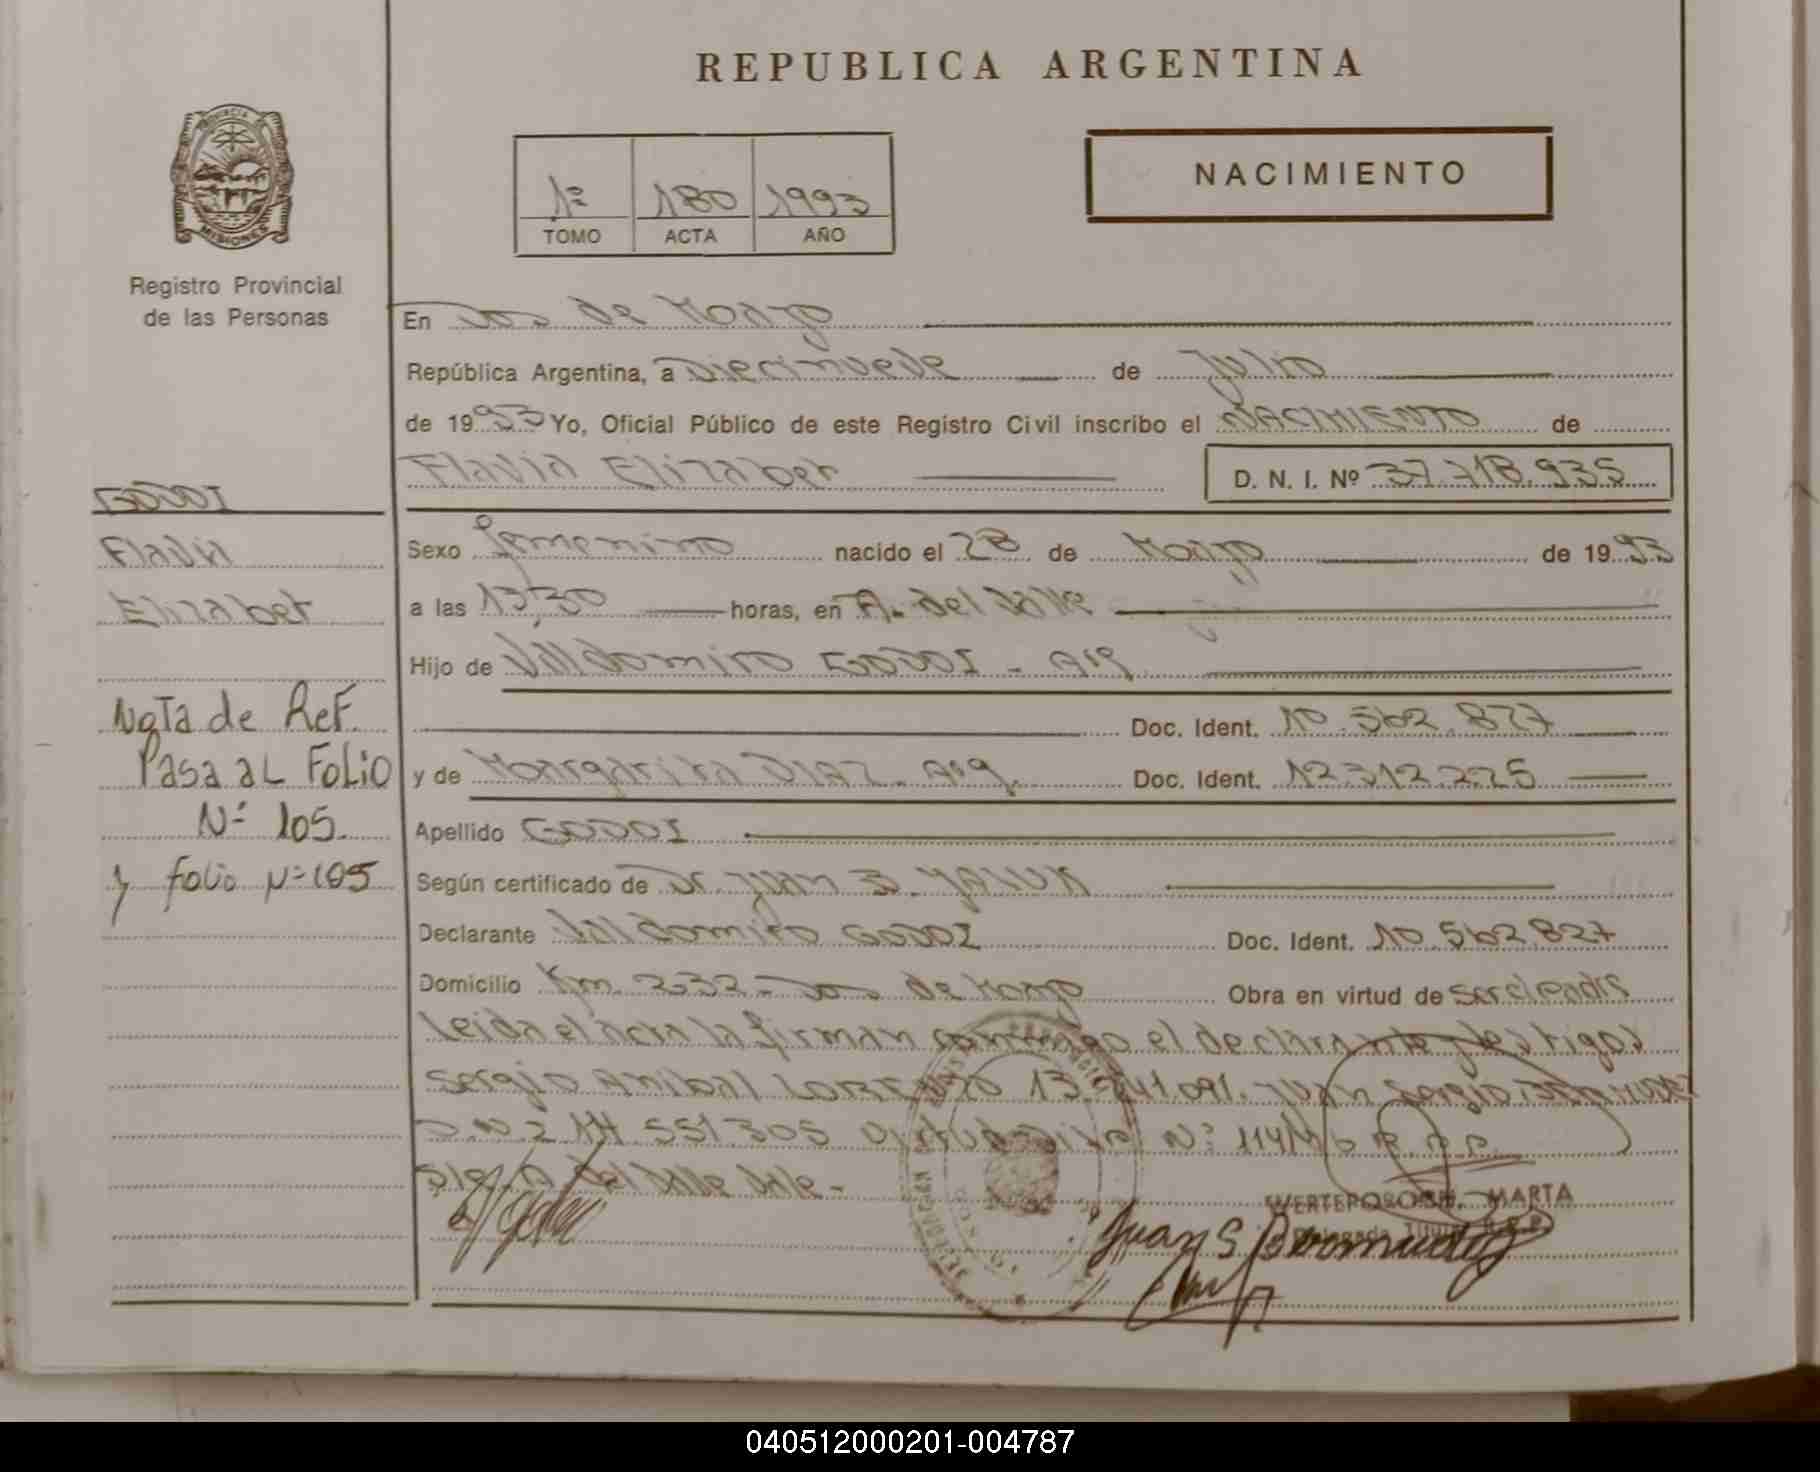 REPUBLICA ARGENTINA
PROVINCIA DE
MISIONES
Registro Provincial
de las Personas
1º 180 1993
TOMO ACTA AÑO
NACIMIENTO
En Dos de Marzo
República Argentina, a Diecinueve de Julio
de 1993 Yo, Oficial Público de este Registro Civil inscribo el NACIMIENTO de
Flavia Elizabet D. N. I. Nº 37.718.935
GODOI
Flavia
Elizabet
Sexo femenino nacido el 28 de Marzo de 1993
a las 13,30 horas, en A. del Valle
Hijo de Valdomiro GODOI - Arg
Doc. Ident. 10.562.827
y de Margarita DIAZ - Arg. Doc. Ident. 12.312.225
Nota de Ref.
Pasa al Folio
Nº 105.
y folio Nº 105
Apellido GODOI
Según certificado de Dr. Juan B.
Declarante Valdomiro GODOI Doc. Ident. 10.562.827
Domicilio Km. 232 - Dos de Marzo Obra en virtud de ser el padre
Leida el acta la firman conmigo el declarante y testigos
Sergio Anibal 13. 41.091. Juan Sergio
551305 Nº
A del Valle Vale -
WERTEPOROCH, MARTA
Juan S Bermudez
040512000201-004787